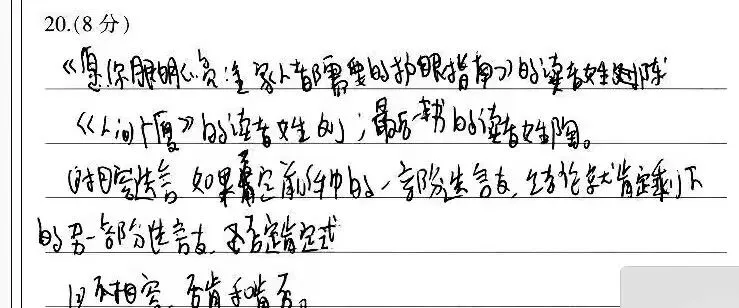 20.(8分)
《愿你眼明心亮:全家人都需要的护眼指南》的读者姓陈
《人间广厦》的读者姓刘;最后一书的读者姓陶。
相容选言 如果否定前件中的一部分选言支,结论就肯定剩下
的另一部分选言支,否定肯定式
不相容,否肯和肯否。